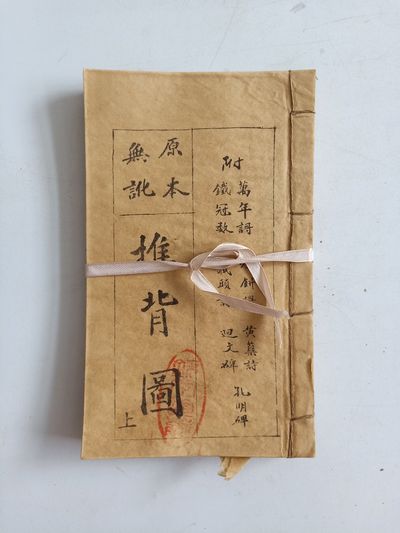 附
萬年謌
餅
黃蘗詩
孔明碑
鐵冠數
頭
迴文碑
原本
無訛
推背圖
上